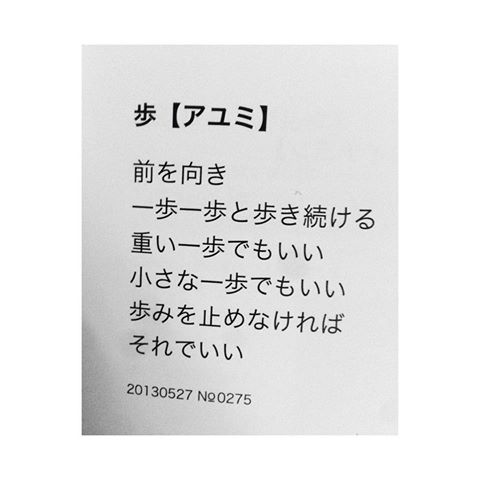 歩【アユミ】
前を向き
一歩一歩と歩き続ける
重い一歩でもいい
小さな一歩でもいい
歩みを止めなければ
それでいい
20130527 №0275